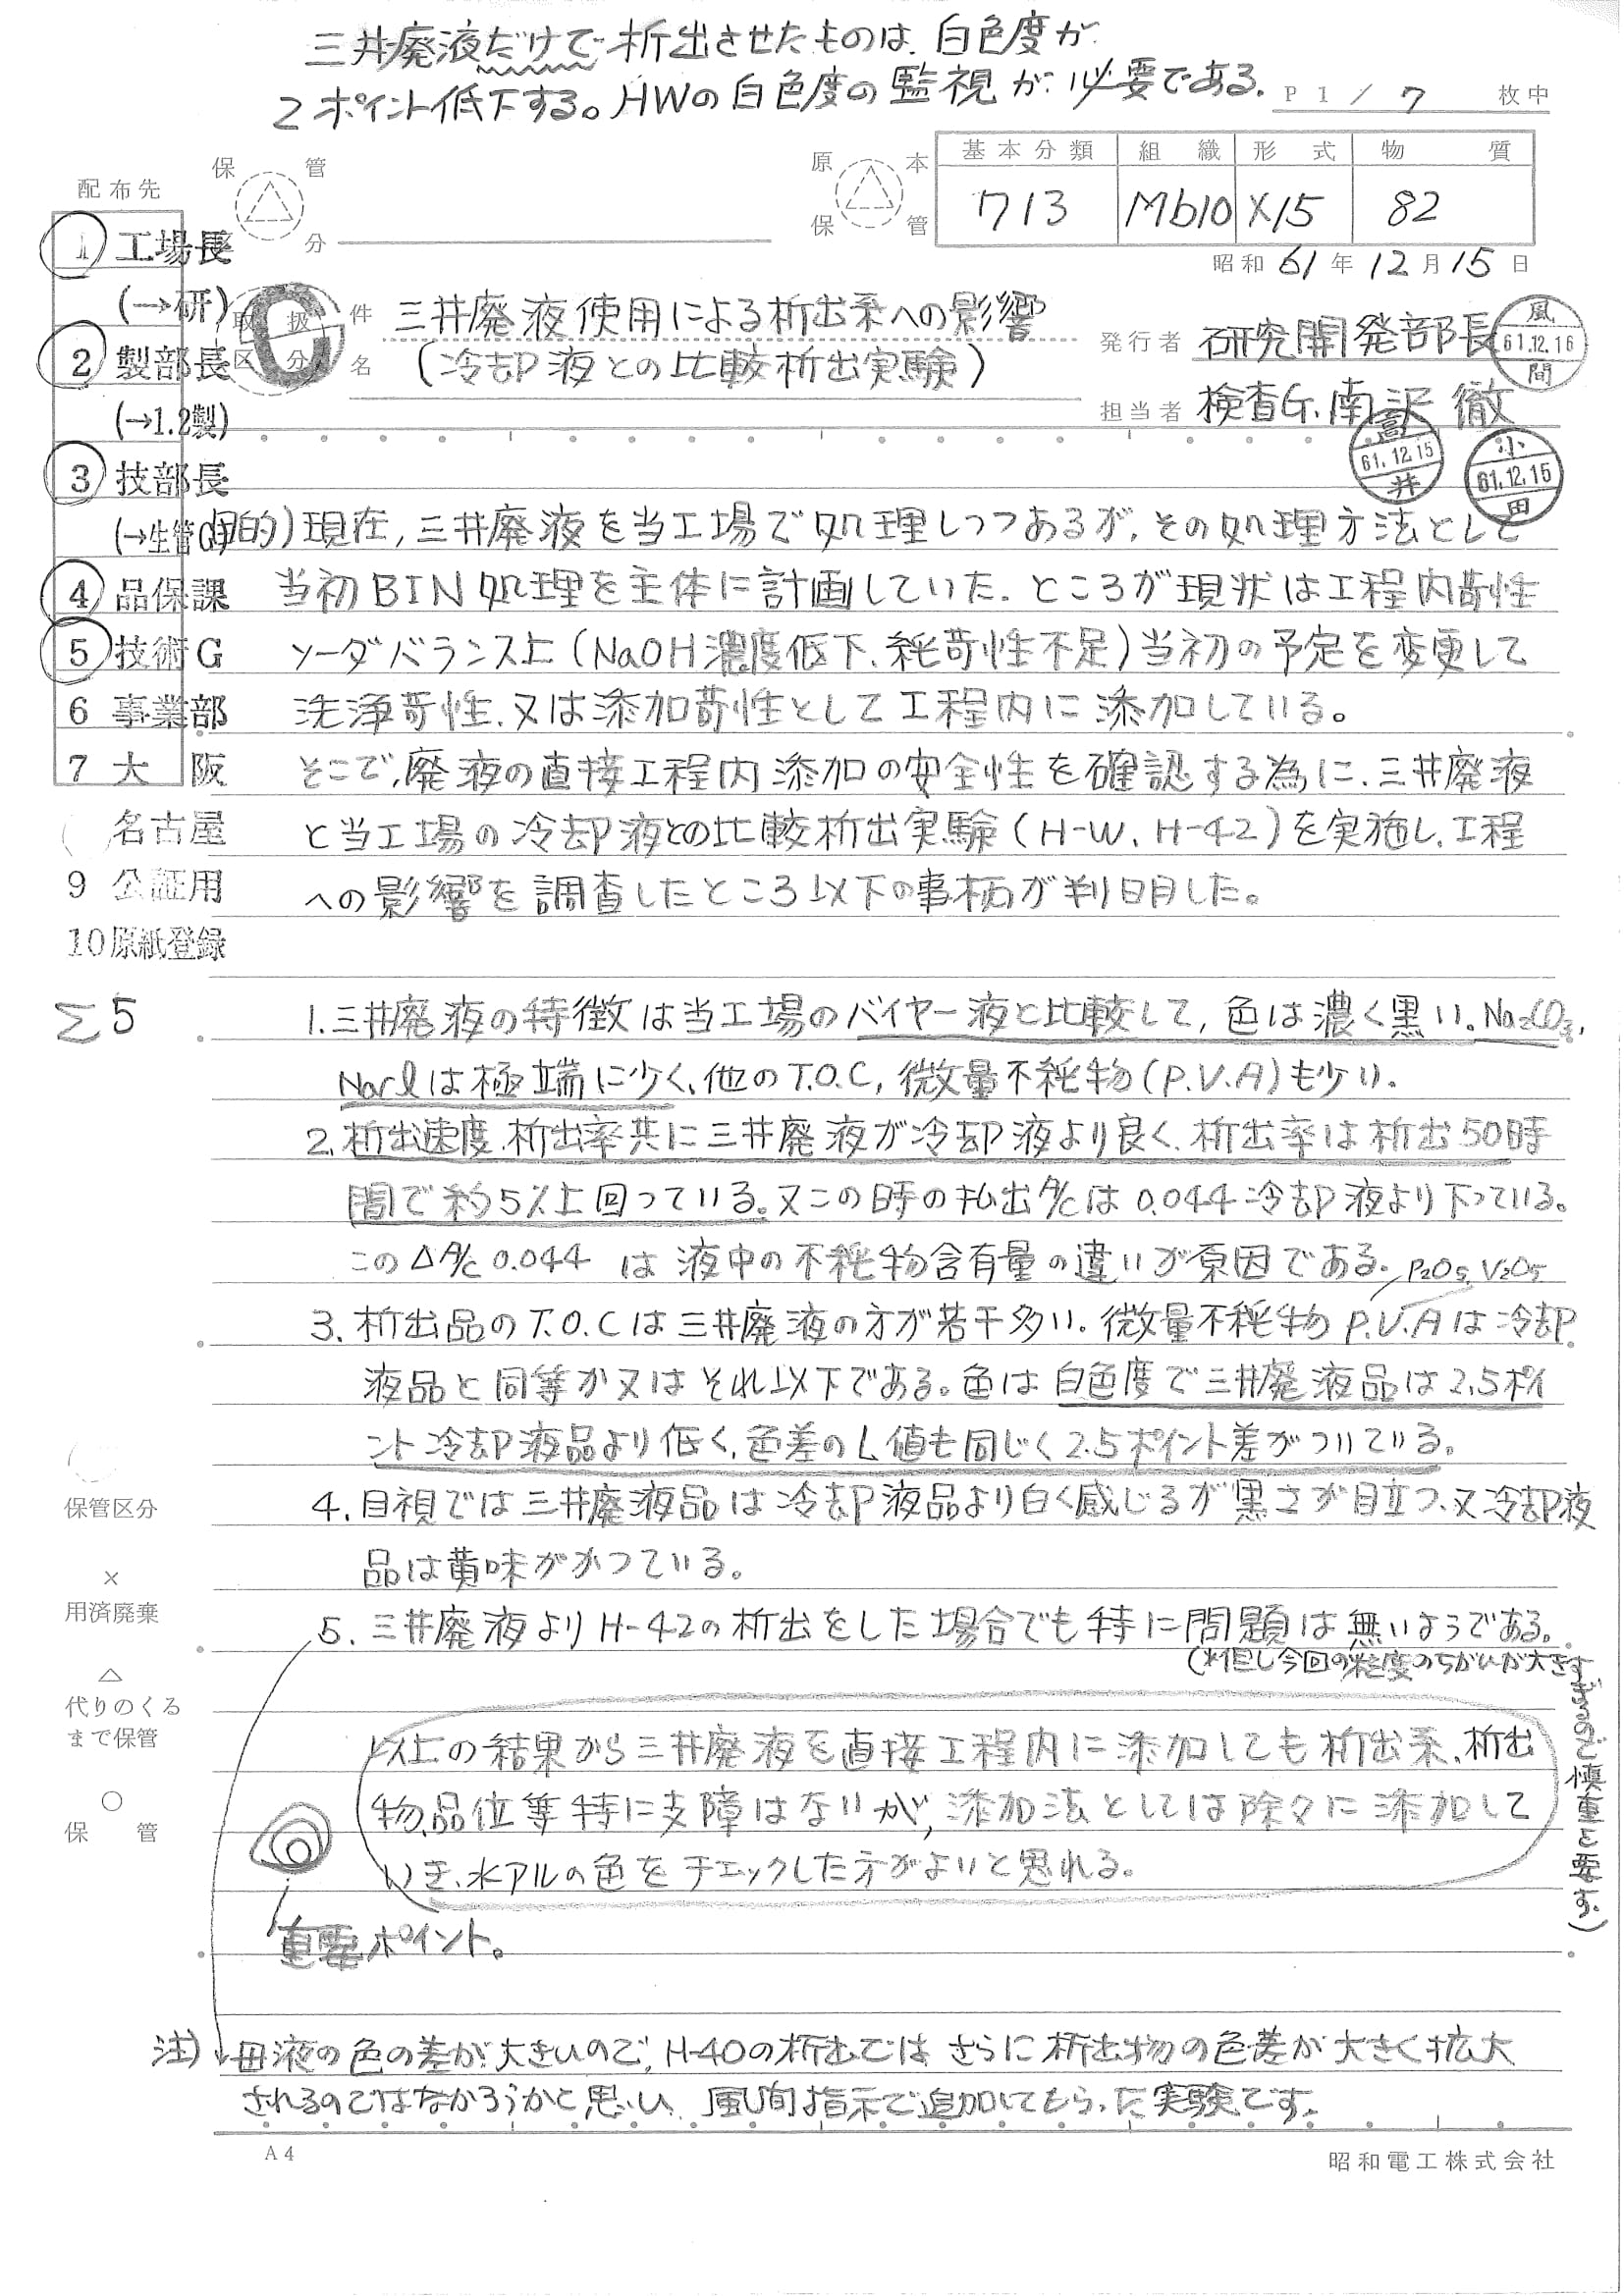 三井廃液だけで析出させたものは、白色度が
2ポイント低下する。HWの白色度の監視が必要である。
P 1 / 7 枚中
配布先
保 管
分
原 本
保 管
基本分類 組織 形式 物質
713 Mb10 X15 82
昭和 61年 12月 15日
1 工場長
(→研)
2 製部長
(→1.2製)
3 技部長
(→生管G)
4 品保課
5 技術G
6 事業部
7 大 阪
名古屋
9 公証用
10 原紙登録
Σ5
取扱
区分
C
件名 三井廃液使用による析出系への影響
(冷却液との比較析出実験)
発行者 研究開発部長
風 61.12.16 間
担当者 検査G. 南沢 徹
高 61.12.15 井
小 61.12.15 田
目的) 現在, 三井廃液を当工場で処理しつつあるが, その処理方法として
当初BIN処理を主体に計画していた. ところが現状は工程内苛性
ソーダバランス上(NaOH濃度低下、純苛性不足)当初の予定を変更して
洗浄苛性、又は添加苛性として工程内に添加している。
そこで, 廃液の直接工程内添加の安全性を確認する為に、三井廃液
と当工場の冷却液との比較析出実験(H-W、H-42)を実施し、工程
への影響を調査したところ以下の事柄が判明した。
1. 三井廃液の特徴は当工場のバイヤー液と比較して, 色は濃く黒い。Na2CO3,
NaClは極端に少く、他のT.O.C, 微量不純物(P.V.A)も少い.
2. 析出速度、析出率共に三井廃液が冷却液より良く、析出率は析出50時
間で約5%上回っている。又この時の払出A/Cは0.044冷却液より下っている。
このΔA/C 0.044 は液中の不純物含有量の違いが原因である.
P2O5, V2O5
3. 析出品のT.O.Cは三井廃液の方が若干多い。微量不純物P.V.Aは冷却
液品と同等か又はそれ以下である。色は白色度で三井廃液品は2.5ポイ
ント冷却液品より低く、色差のL値も同じく2.5ポイント差がついている。
4. 目視では三井廃液品は冷却液品より白く感じるが黒さが目立つ、又冷却液
品は黄味がかっている。
5. 三井廃液よりH-42の析出をした場合でも特に問題は無いようである。
(※但し今回の粒度のちがいが大きすぎるので慎重を要す.)
以上の結果から三井廃液を直接工程内に添加しても析出系、析出
物品位等特に支障はないが, 添加法としては除々に添加して
いき、水アルの色をチェックした方がよいと思れる.
重要ポイント。
注) 母液の色の差が大きいので, H-40の析出では さらに析出物の色差が大きく拡大
されるのではなかろうかと思い、風間指示で追加してもらった実験です.
保管区分
×
用済廃棄
△
代りのくる
まで保管
○
保 管
A4
昭和電工株式会社